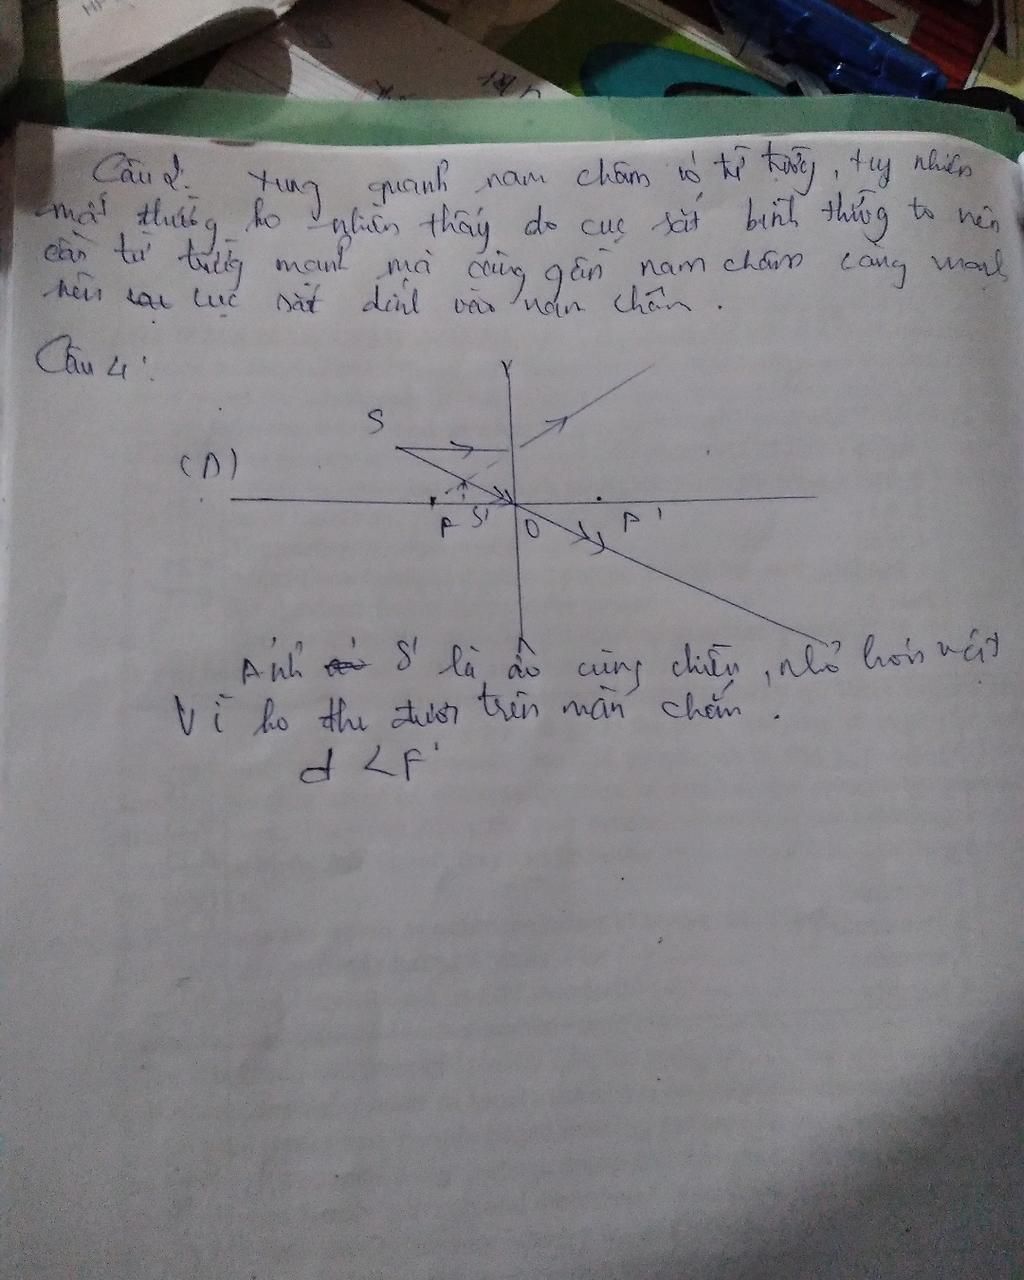 Câu 2: xung quanh nam châm có từ trường, tuy nhiên
mắt thường ko nhìn thấy do cục sắt bình thường to nên
cần từ trường mạnh mà càng gần nam châm càng mạnh
nên cục sắt dính vào nam châm.
Câu 4:
S
(Δ)
F S' O F'
Ảnh S' là ảo cùng chiều, nhỏ hơn vật
Vì ko thu được trên màn chắn.
d < F'